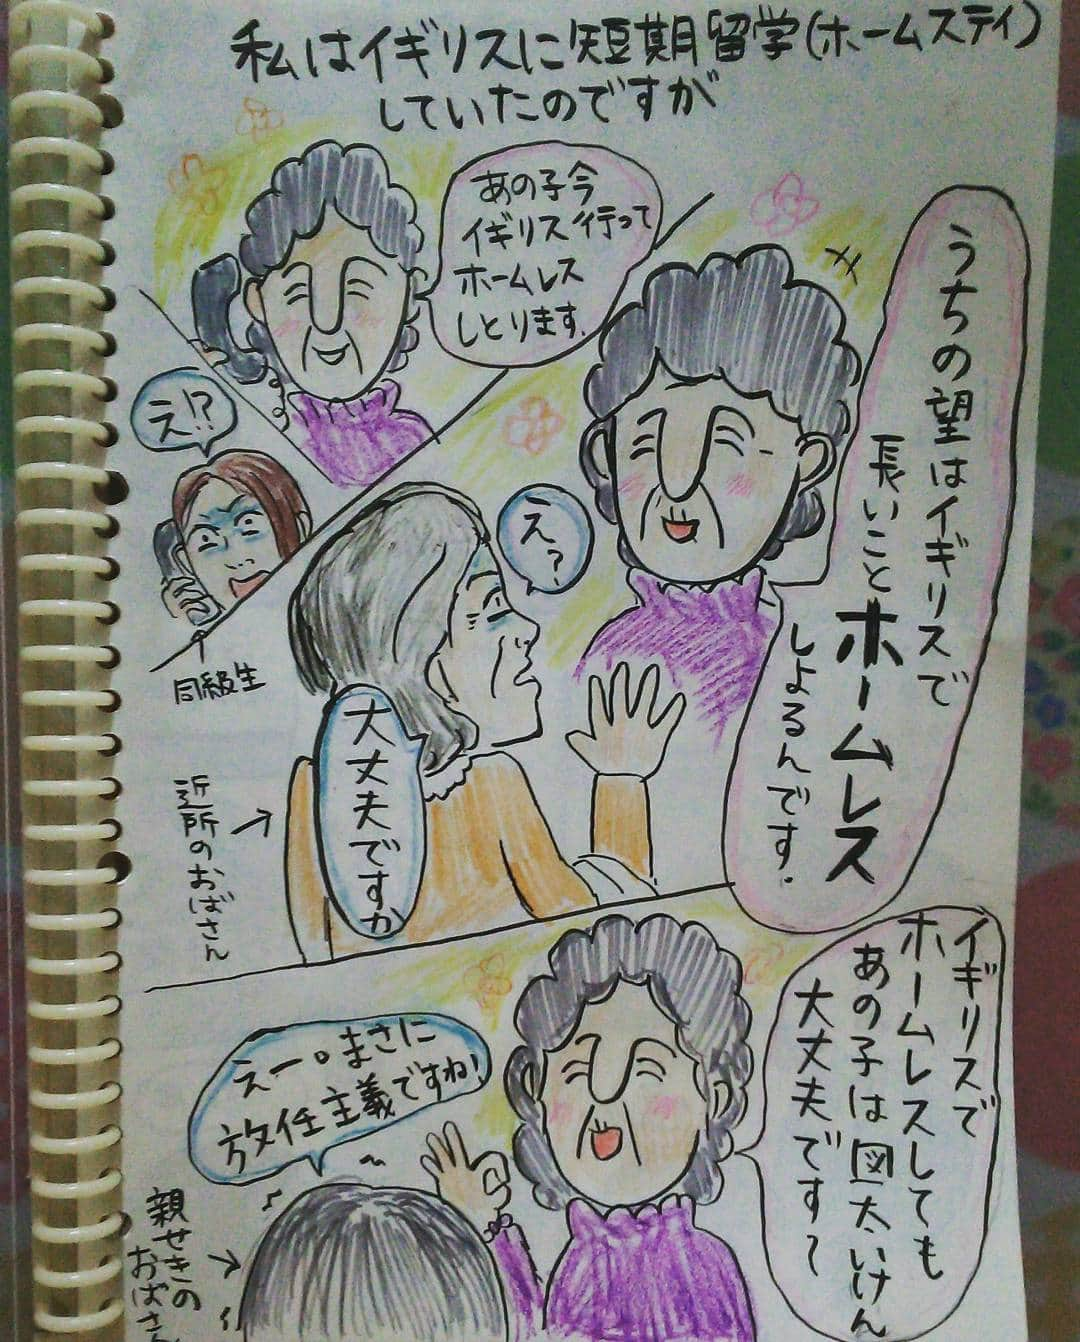 私はイギリスに短期留学(ホームスティ)
していたのですが
あの子今
イギリス行って
ホームレス
しとります.
え!?
同級生
うちの望はイギリスで
長いこと
ホームレス
しよるんです.
え?
大丈夫ですか
近所のおばさん
イギリスで
ホームレスしても
あの子は図太いけん
大丈夫です〜
えー。まさに
放任主義ですね!
親せきの
おばさん